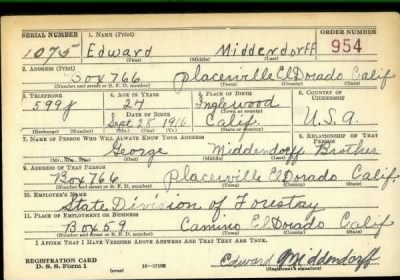 SERIAL NUMBER 1. NAME (Print) ORDER NUMBER
1075 Edward Middendorff 954
(First) (Middle) (Last)
2. ADDRESS (Print)
Box 766 Placerville El Dorado Calif
(Number and street or R. F. D. number) (Town) (County) (State)
3. TELEPHONE 4. AGE IN YEARS 5. PLACE OF BIRTH 6. COUNTRY OF CITIZENSHIP
599J 24 Inglewood
DATE OF BIRTH (Town or county)
Sept 28 1916 Calif. U.S.A.
(Exchange) (Number) (Mo.) (Day) (Yr.) (State or country)
7. NAME OF PERSON WHO WILL ALWAYS KNOW YOUR ADDRESS 8. RELATIONSHIP OF THAT PERSON
George Middendorff Brother
(First) (Middle) (Last)
9. ADDRESS OF THAT PERSON
Box 766 Placerville El Dorado Calif.
(Number and street or R. F. D. number) (Town) (County) (State)
10. EMPLOYER'S NAME
State Division of Forestry
11. PLACE OF EMPLOYMENT OR BUSINESS
Box 59 Camino El Dorado Calif
(Number and street or R. F. D. number) (Town) (County) (State)
I AFFIRM THAT I HAVE VERIFIED ABOVE ANSWERS AND THAT THEY ARE TRUE.
REGISTRATION CARD Edward Middendorff
D. S. S. Form 1 (over) (Registrant's signature)